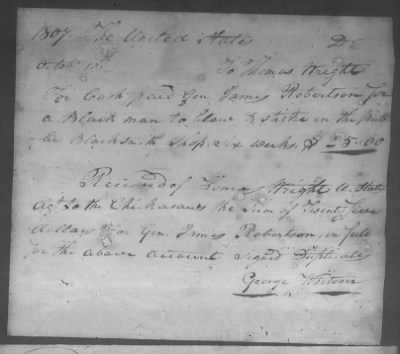 1807. The United States Dr
Octobr 10th To Thomas Wright
For Cash paid Gen James Robertson for
a Black man to blow & strike in the Pub
lic Blacksmith shop, six weeks $ 25.00
Received of Thomas Wright U. States
agt to the Chickasaws the sum of Twenty five
dollars for Gen. James Robertson, in full
for the above account signed Duplicates
George Whitson